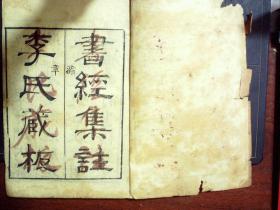 書經集註
李氏藏板